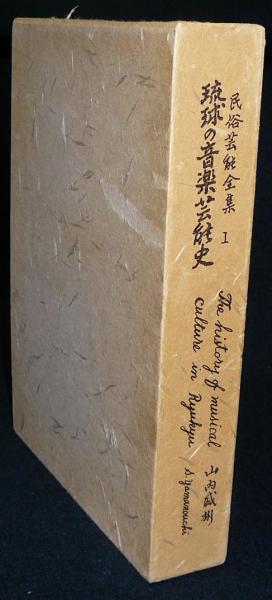 民俗芸能全集 I
琉球の音楽芸能史
The history of musical
culture in Ryukyu
山内盛彬
S. Yamanouchi